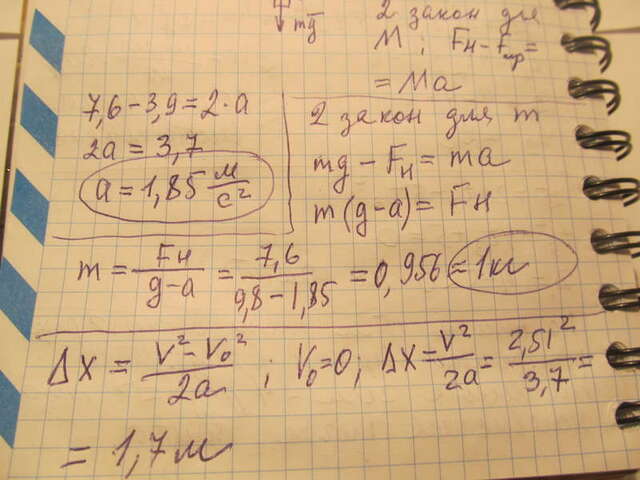 mg
2 закон для
M; Fн - Fтр =
= Ma
7,6 - 3,9 = 2·a
2a = 3,7
a = 1,85 м/с²
2 закон для m
mg - Fн = ma
m(g-a) = Fн
m = Fн/(g-a) = 7,6/(9,8-1,85) = 0,956 = 1кг
Δx = (V² - V₀²)/2a ; V₀=0; Δx = V²/2a = 2,51²/3,7 =
= 1,7м